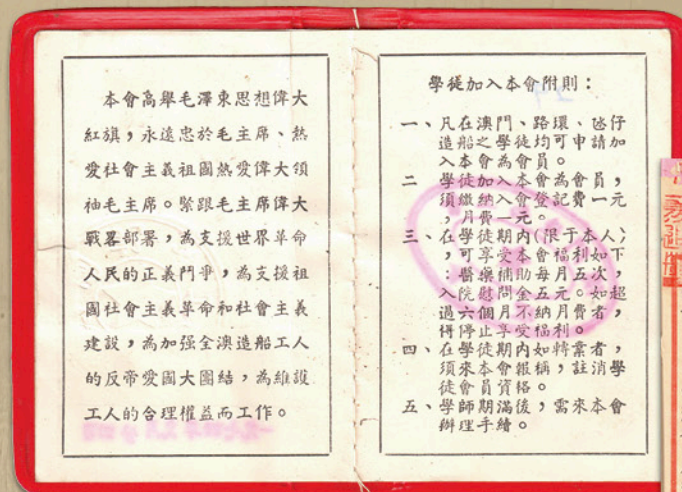 本會高舉毛澤東思想偉大
紅旗，永遠忠於毛主席、熱
愛社會主義祖國熱愛偉大領
袖毛主席。緊跟毛主席偉大
戰畧部署，為支援世界革命
人民的正義鬥爭，為支援祖
國社會主義革命和社會主義
建設，為加强全澳造船工人
的反帝愛國大團結，為維護
工人的合理權益而工作。
學徒加入本會附則：
一、凡在澳門、路環、氹仔
造船之學徒均可申請加
入本會為會員。
二 學徒加入本會為會員，
須繳納入會登記費一元
，月費一元。
三、在學徒期內(限于本人)
，可享受本會福利如下
：醫藥補助每月五次，
入院慰問金五元。如超
過六個月不納月費者，
得停止享受福利。
四、在學徒期內如轉業者，
須來本會報稱，註消學
徒會員資格。
五、學師期滿後，需來本會
辦理手續。